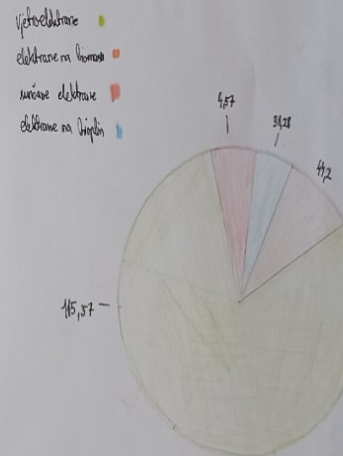 vjetroelektrane
elektrane na biomasu
sunčane elektrane
elektrane na bioplin
4,57
31,28
44,2
115,57